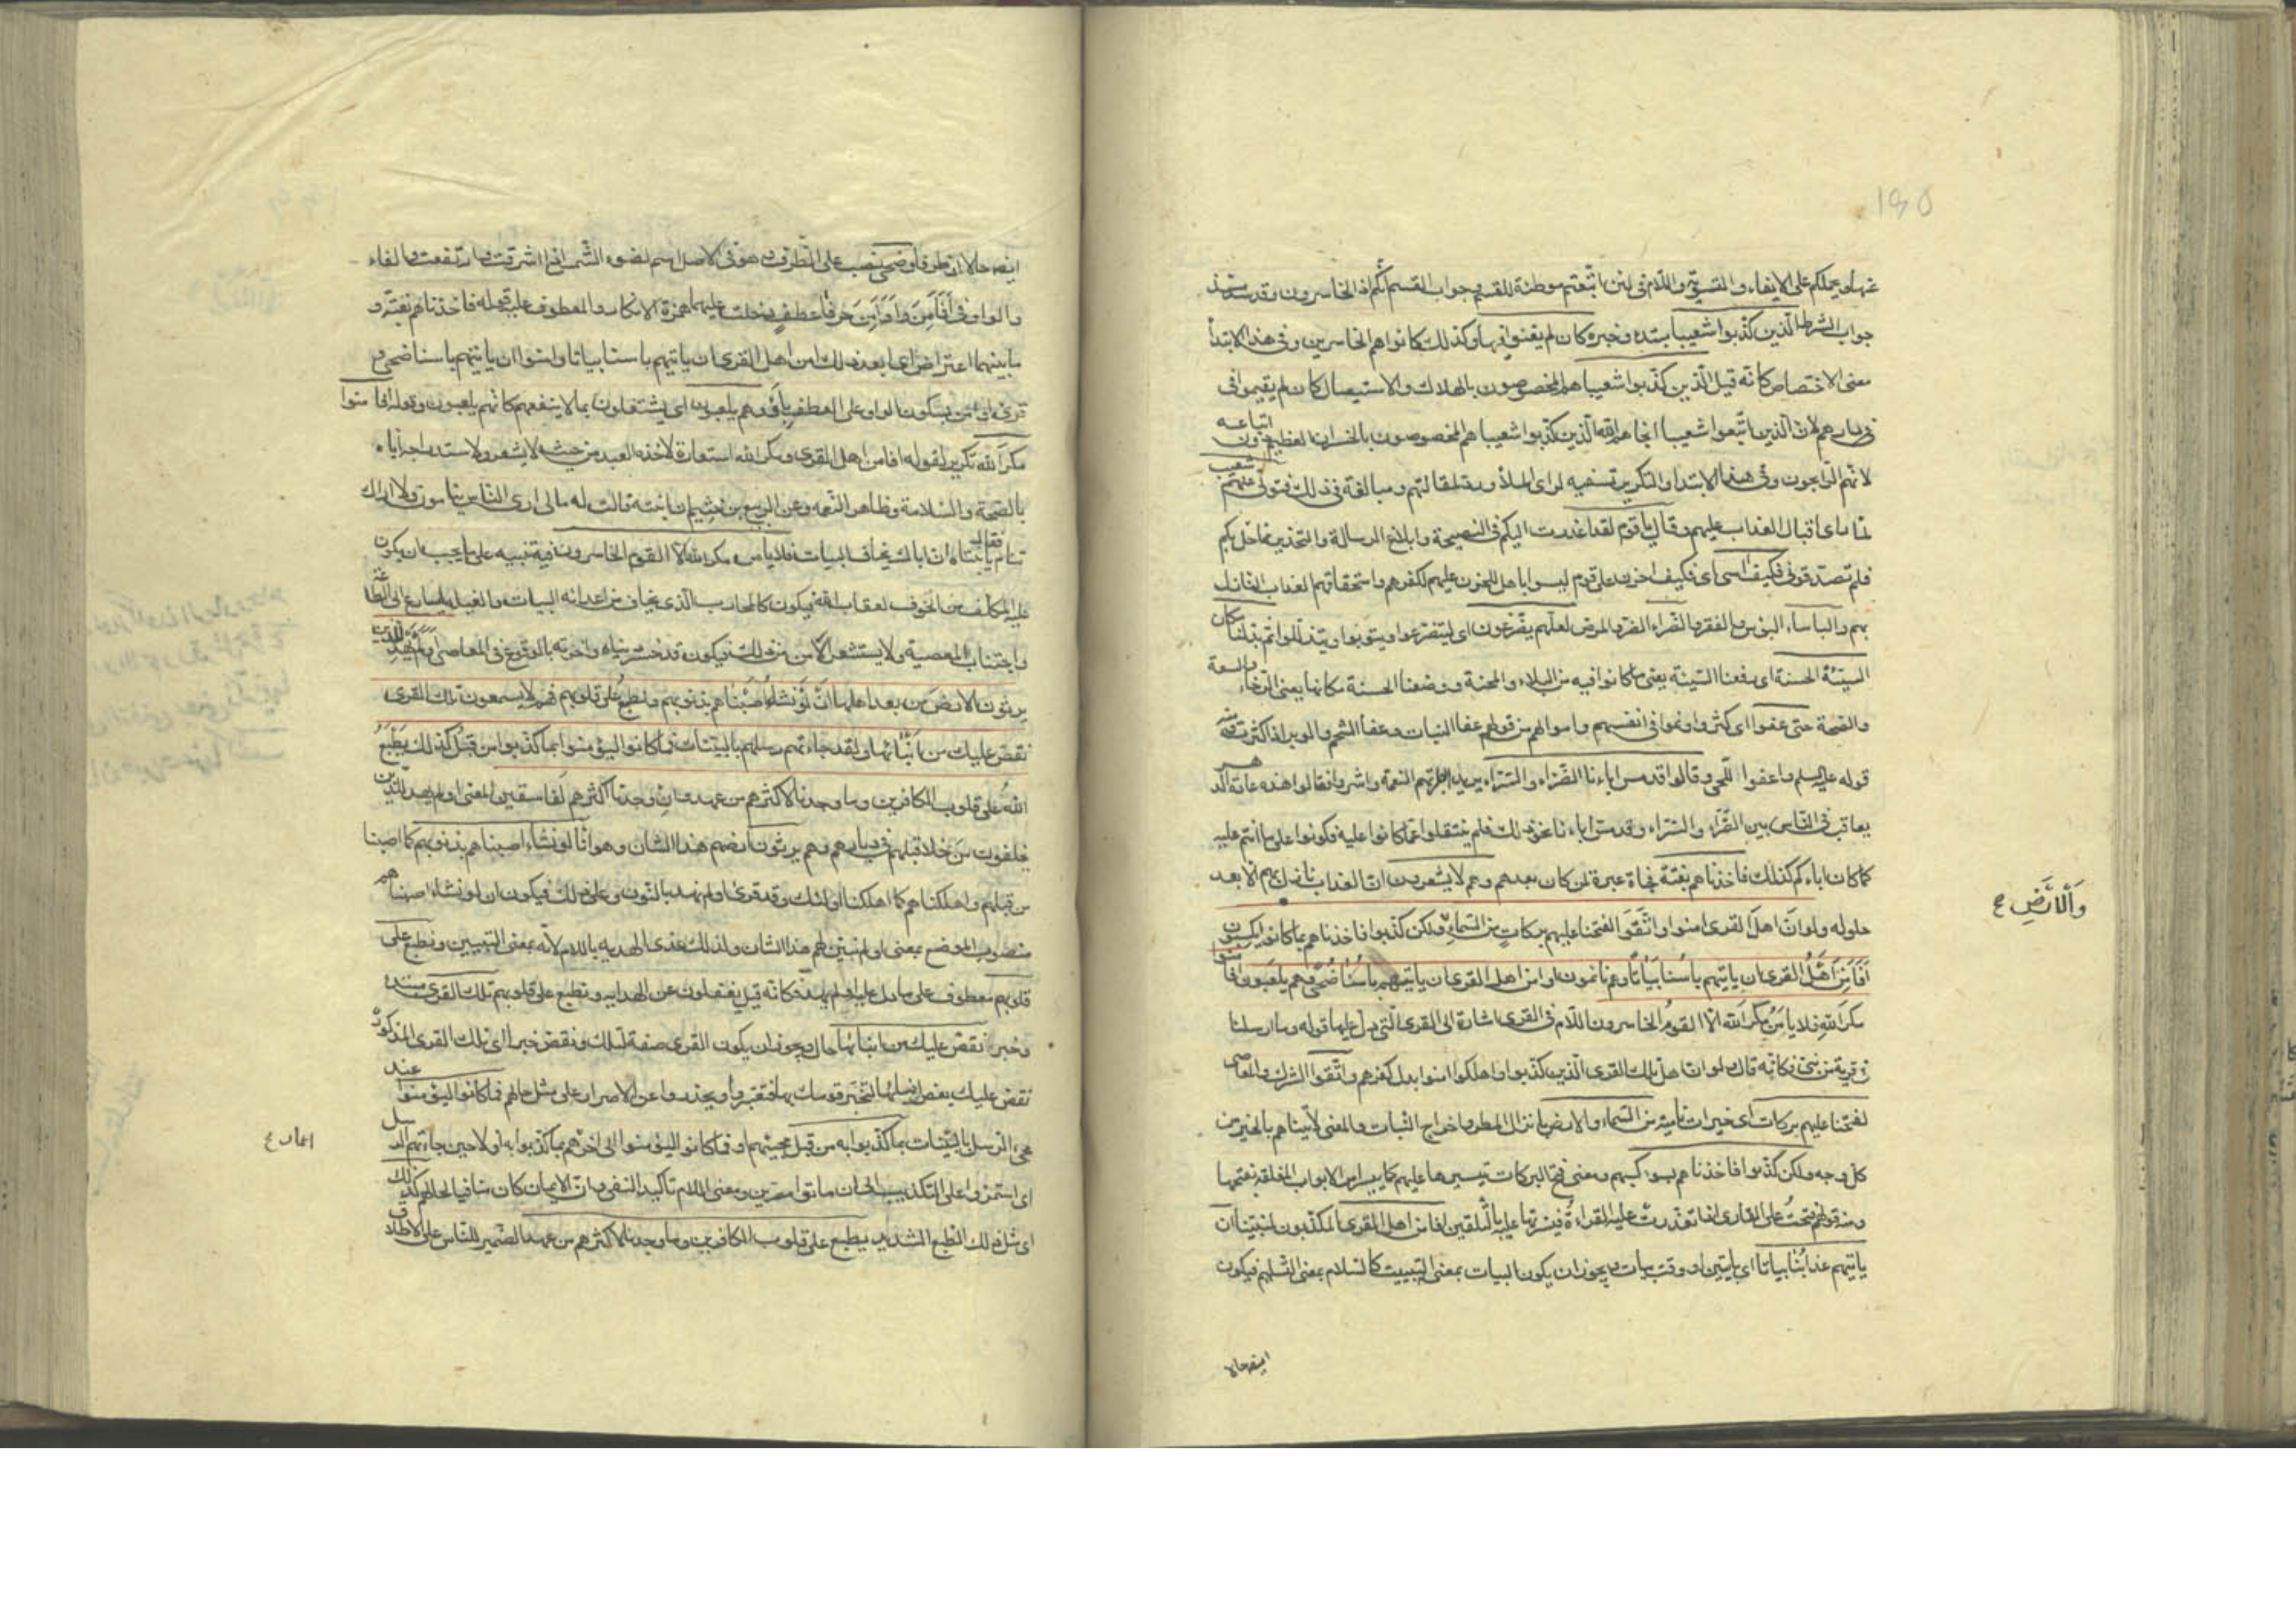 عنها ويحملكم على الايفاء والتسوية واللام فى لئن اتبعتم موطئة للقسم وجواب القسم انكم اذا لخاسرون وقد سد مسد
جواب الشرط الذين كذبوا شعيبا مبتدء وخبره كان لم يغنوا فيها وكذلك كانوا هم الخاسرين وفى هذا الابتدأ
معنى الاختصاص كانه قيل الذين كذبوا شعيبا هم المخصوصون بالهلاك والاستيصال كان لم يقيموا فى
ديارهم لان الذين اتبعوا شعيبا انجاهم الله الذين كذبوا شعيبا هم المخصوصون بالخسران العظيم دون اتباعه
لانهم الرابحون وفى هذا الابتداء والتكرير تسفيه لراى الملأ ورد لمقالتهم ومبالغة فى ذلك فتولى عنهم شعيب
لما راى اقبال العذاب عليهم وقال يا قوم لقد اعذرت اليكم فى النصيحة وابلاغ الرسالة والتحذير مما حل بكم
فلم تصدقونى فكيف اسى اى فكيف احزن على قوم ليسوا باهل للحزن عليهم لكفرهم واستحقاقهم لعذاب النازل
بهم والباساء البؤس والفقر والضراء الضر والمرض لعلهم يضرعون اى ليتضرعوا ويتوبوا ويتذللوا ثم بدلنا مكان
السيئة الحسنة اى رفعنا السيئة يعنى ما كانوا فيه من البلاء والمحنة ووضعنا الحسنة مكانها يعنى الرخاء والسعة
والصحة حتى عفوا اى كثروا ونموا فى انفسهم واموالهم من قولهم عفا النبات وعفا الشحم والوبر اذا كثرت ومنه
قوله عليه السلم واعفوا اللحى وقالوا قد مس اباءنا الضراء والسراء يريد ابطرتهم النعمة واشروا فقالوا هذه عادة الدهر
يعاقب فى الناس بين الضراء والسراء وقد مس اباءنا نحو ذلك فلم ينتقلوا عما كانوا عليه فكونوا على ما انتم عليه
كما كان اباءكم كذلك فاخذناهم بغتة فجاة عبرة لمن كان بعدهم وهم لا يشعرون ان العذاب نازل بهم الا بعد
حلوله ولو ان اهل القرى امنوا واتقوا لفتحنا عليهم بركات من السماء ولكن كذبوا فاخذناهم بما كانوا يكسبون
وَالاَرْضِ ح
افامن اهل القرى ان ياتيهم باسنا بياتا وهم نائمون اوامن اهل القرى ان ياتيهم باسنا ضحى وهم يلعبون افامنوا
مكر الله فلا يامن مكر الله الا القوم الخاسرون اللام فى القرى اشارة الى القرى التى دل عليها قوله وما ارسلنا
فى قرية من نبى فكانه قال لو ان اهل تلك القرى الذين كذبوا واهلكوا امنوا بدل كفرهم واتقوا الشرك والمعاصى
لفتحنا عليهم بركات اى خيرات نامية من السماء والارض بانزال المطر واخراج النبات والمعنى لاتيناهم بالخير من
كل وجه ولكن كذبوا فاخذناهم بسوء كسبهم ومعنى فتح البركات تيسيرها عليهم كما ييسر امر الابواب المغلقة بفتحها
ومنه قولهم فتحت على القارى اذا تعذرت عليه القراءة فيسرتها عليه بالتلقين افامن اهل القرى المكذبون لنبينا ان
ياتيهم عذابنا بياتا اى بايتين او وقت بيات ويجوز ان يكون البيات بمعنى التبييت كالسلام بمعنى التسليم فيكون
ايضا حالا
ايضا حالا او ظرفا وضحى نصب على الظرف وهو فى الاصل اسم لضوء الشمس اذا اشرقت وارتفعت والفاء
والواو فى افامن واوامن حرفا عطف دخلت عليهما همزة الانكار والمعطوف عليه قوله فاخذناهم بغتة و
ما بينهما اعتراض اى ابعد ذلك امن اهل القرى ان ياتيهم باسنا بياتا وامنوا ان ياتيهم باسنا ضحى و
قرئ اوامن بسكون الواو على العطف باو وهم يلعبون اى يشتغلون بما لا ينفعهم كانهم يلعبون وقوله افامنوا
مكر الله تكرير لقوله افامن اهل القرى ومكر الله استعارة لاخذه العبد من حيث لا يشعر ولاستدراجه اياه
بالصحة والسلامة وظاهر النعمه وعن الربيع بن خثيم ان ابنته قالت له ما لى ارى الناس ينامون ولا اراك
تنام فقال يا بنتاه ان اباك يخاف البيات فلا يامن مكر الله الا القوم الخاسرون فيه تنبيه على ما يجب ان يكون
عليه المكلف من الخوف لعقاب الله فيكون كالمحارب الذى يخاف من اعدائه البيات والغيلة ليسارع الى الطاعة
واجتناب المعصية ولا يستشعر الامن من ذلك فيكون قد خسر دنياه واخرته بالوقوع فى المعاصى اولم يهد للذين
يرثون الارض من بعد اهلها ان لو نشاء اصبناهم بذنوبهم ونطبع على قلوبهم فهم لا يسمعون تلك القرى
نقص عليك من انبائها ولقد جاءتهم رسلهم بالبينات فما كانوا ليؤمنوا بما كذبوا من قبل كذلك يطبع
الله على قلوب الكافرين وما وجدنا لاكثرهم من عهد وان وجدنا اكثرهم لفاسقين المعنى اولم يهد للذين
يخلفون من خلا قبلهم فى ديارهم وهم يرثون ارضهم هذا الشان وهو انا لو نشاء اصبناهم بذنوبهم كما اصبنا
من قبلهم واهلكناهم كما اهلكنا اولئك وقد قرئ اولم نهد بالنون وعلى ذلك فيكون ان لو نشاء اصبناهم
منصوب الموضع بمعنى اولم نبين لهم هذا الشان ولذلك عدى الهديه باللام لانه بمعنى التبيين ونطبع على
قلوبهم معطوف على ما دل عليه اولم يهد فكانه قيل يغفلون عن الهدايه ونطبع على قلوبهم تلك القرى مبتدء
وخبر نقص عليك من انبائها حال ويجوز ان يكون القرى صفة لتلك ونقص خبرا اى تلك القرى المذكورة
نقص عليك بعض انبائها لتخبر قومك بها فيعتبروا ويحذروا عن الاصرار على مثل حالهم فما كانوا ليؤمنوا عند
مجىء الرسل بالبينات بما كذبوا به من قبل مجيئهم او فما كانوا ليؤمنوا الى اخر اعمارهم بما كذبوا به اولا حين جاءتهم الرسل
اعمار ح
اى استمروا على التكذيب الى ان ماتوا مصرين ومعنى اللام تاكيد النفى وان الايمان كان منافيا لحالهم كذلك
اى مثل ذلك الطبع الشديد يطبع على قلوب الكافرين وما وجدنا لاكثرهم من عهد الضمير للناس على الاطلاق